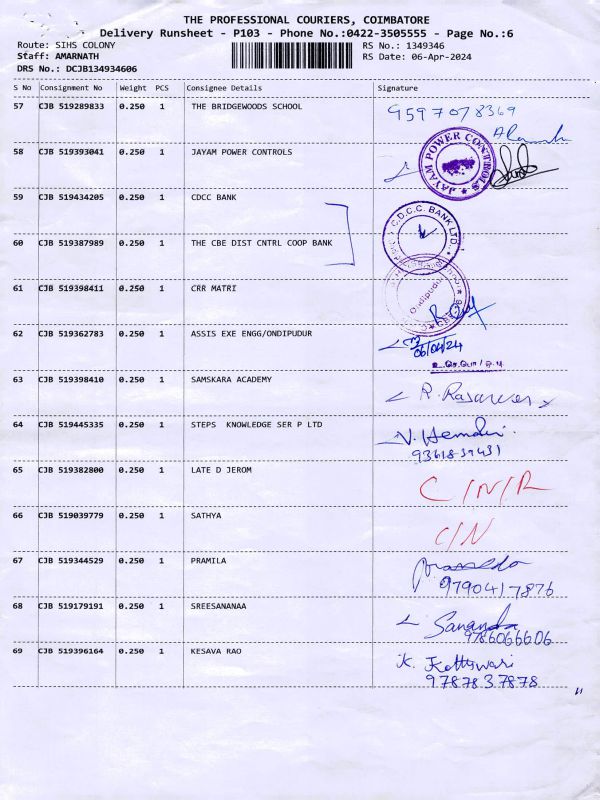 THE PROFESSIONAL COURIERS, COIMBATORE
Delivery Runsheet - P103 - Phone No.:0422-3505555 - Page No.:6
Route: SIHS COLONY RS No.: 1349346
Staff: AMARNATH RS Date: 06-Apr-2024
DRS No.: DCJB134934606
S No Consignment No Weight PCS Consignee Details Signature
57 CJB 519289833 0.250 1 THE BRIDGEWOODS SCHOOL 9597078369
58 CJB 519393041 0.250 1 JAYAM POWER CONTROLS JAYAM POWER CONTROLS
59 CJB 519434205 0.250 1 CDCC BANK C.D.C.C. BANK LTD.
60 CJB 519387989 0.250 1 THE CBE DIST CNTRL COOP BANK
61 CJB 519398411 0.250 1 CRR MATRI Ondipudur
62 CJB 519362783 0.250 1 ASSIS EXE ENGG/ONDIPUDUR 06/04/24
63 CJB 519398410 0.250 1 SAMSKARA ACADEMY
64 CJB 519445335 0.250 1 STEPS KNOWLEDGE SER P LTD
93618-39431
65 CJB 519382800 0.250 1 LATE D JEROM C/N/R
66 CJB 519039779 0.250 1 SATHYA C/N
67 CJB 519344529 0.250 1 PRAMILA
9790417876
68 CJB 519179191 0.250 1 SREESANANAA Sananda
9786066606
69 CJB 519396164 0.250 1 KESAVA RAO
9787837878